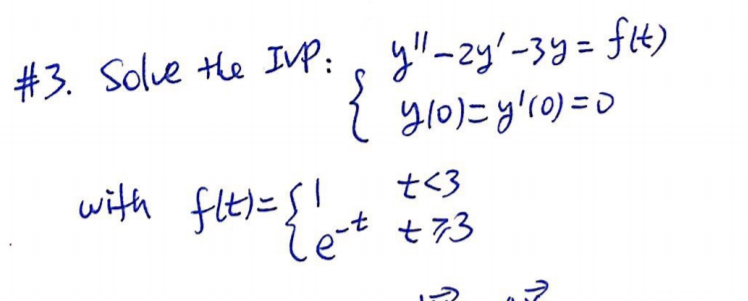 #3. Solve the IVP: { y'' - 2y' - 3y = f(t)
y(0) = y'(0) = 0
with f(t) = { 1 t < 3
e^{-t} t ⩾ 3